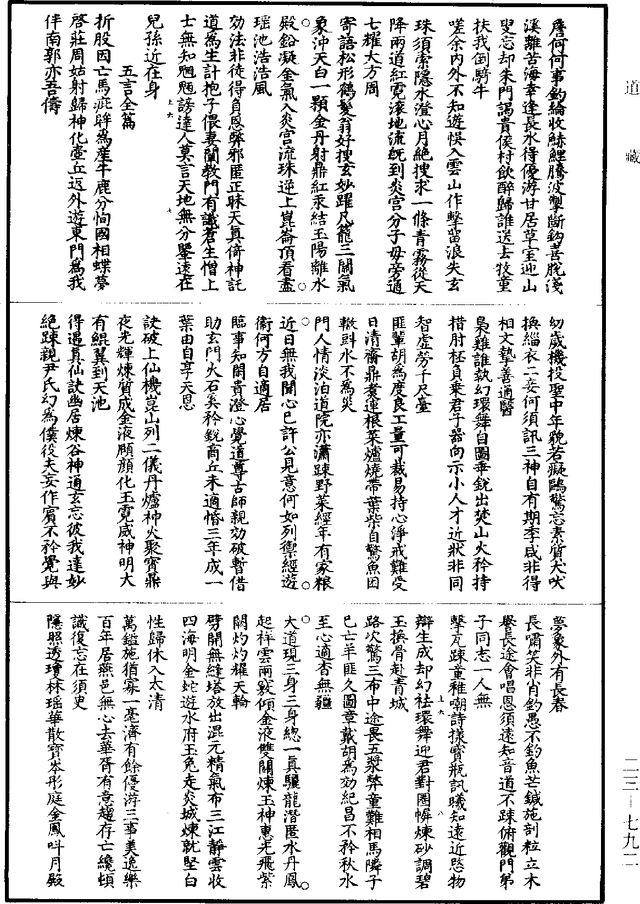 道藏
詹何何事釣綸收絲鯉騰波掣斷鈎善脫淺
溪離苦海幸逢長水得優游甘居草室迎山
叟忘却朱門謁貴侯村飲醉歸誰送去牧童
扶我倒騎牛
嗟余内外不知遊悞入雲山作擊留浪失玄
珠須索隱水澄心月絶搜求一條青霧從天
降兩道紅霓滚地流既到炎宮分子母旁通
七耀大方周
寄語松形鶴髮翁好搜玄妙躍凡籠三關氣
象沖天白一顆金丹射鼎紅汞結玉陽離水
殿鉛凝金氣入炎宮流珠逆上崑崙頂看盡
瑶池浩浩風
効法非徒得負恩弊邪匿正昧天真倚神託
道為生計抱子偎妻闡教門有識蒼生僧上
士無知魍魎謗達人莫言天地無分鑒遠在
兒孫近在身
五言全篇
折股因亡馬疵胖為産牛鹿分恂國相蝶夢
啓莊周姑射歸神化壷丘返外遊東門為我
伴南郭亦吾儔
幼歲機投聖中年貌若癡鷗驚忘素質犬吠
換緇衣二妾何須訊三神自有期季咸非得
相文摯善通醫
梟雞誰執幻環舞自圖垂銳出焚山火矜持
措肘柸負乗君子器向示小人才近狀非同
智虛勞千尺臺
匪輩胡為度良工量可裁易持心淨戒難受
日清齋鼎煑連根菜爐燒帶葉柴自驚魚因
轍㪷水不為災
門人情淡泊道院亦瀟踈野菜經年有家粮
近日無我聞心已許公見意何如列禦經遊
衞何方自適居
臨事知閑貴澄心覺道尊古師親効破暫借
助玄門火石奚矜銳商丘未適惛三年成一
葉由自享天恩
訣破上仙機崑山列二儀丹爐神火聚寶鼎
夜光輝煉質成金液頤顔化玉霓威神明大
有鯤翼到天池
得遇真仙訣幽居煉谷神通玄忘彼我達妙
絶踈親尹氏幻為僕役夫妄作賔不矜覺與
夢象外有長春
長嘯笑非肖釣愚不釣魚芒鍼施剖粒立木
舉長途會唱恩須遠知音道不踈俯觀門弟
子同志一人無
擊瓦踈童稚嘲詩様寳瓶訊曦知遠近愍物
辯生成却幻祛環舞迎君對圈幈煉砂調碧
玉換骨赴青城
路次驚三布中途畏五漿弊童難相馬隣子
巳亡羊匪久圖章戴胡為効紀昌不矜秋水
至心適杳無疆
大道現三身三身總一真驪龍潛匿水丹鳳
起祥雲兩竅傾金液雙關煉玉神惠光飛紫
闕灼灼耀天輪
劈開無縫塔放出混元精氣布三江静雲收
四海明金蛇遊水府玉兔走炎城煉就堅白
性歸休入太清
萬鎰施猶寡一毫濟有餘優游三事美逸樂
百年居燕邑無心去華胥有意趨存亡纔頓
識復忘在須史
隱照透瓊林瑶華散寶岑彤庭金鳳吽月殿
二三—七九二